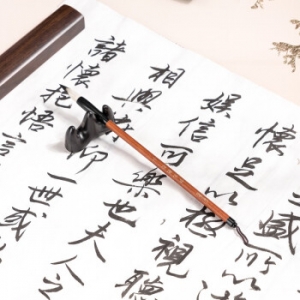 盛所以
懷足以極視聽
娛信可樂也夫人之
相與俯仰一世或
諸懷抱悟言